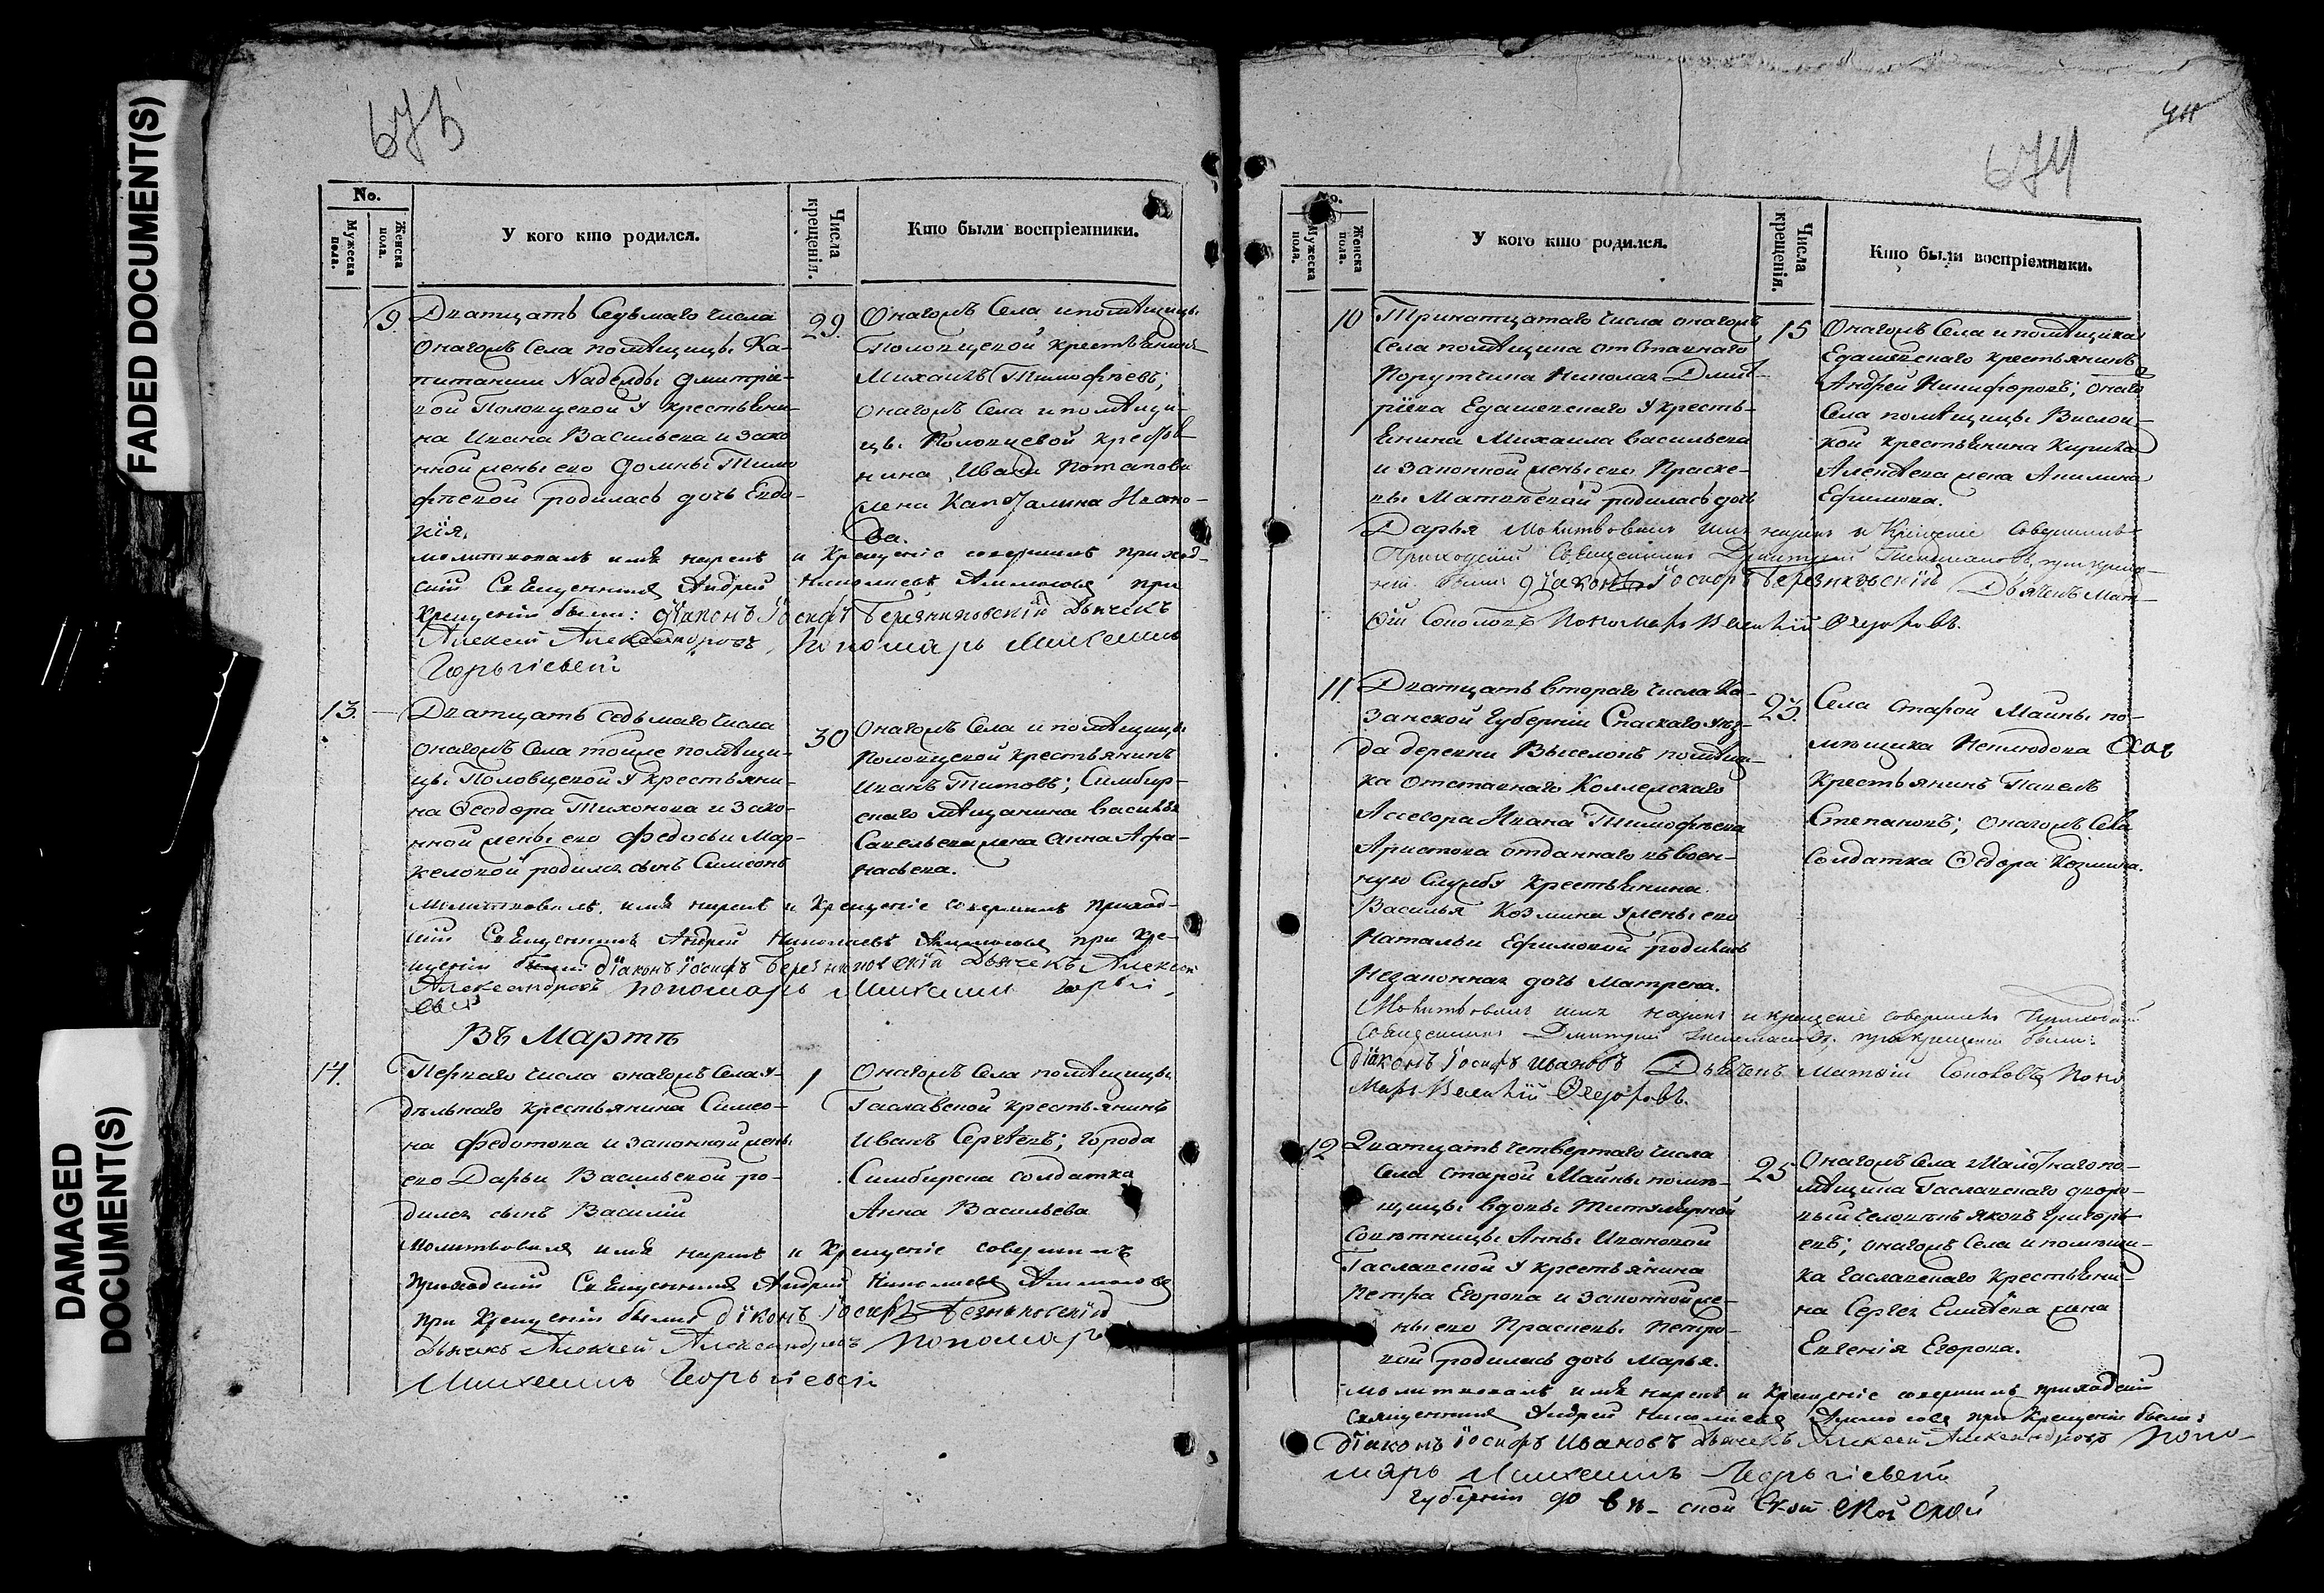 FADED DOCUMENT(S)
DAMAGED
DOCUMENT(S)
673
No.
Мужеска пола.
Женска пола.
У кого кто родился.
Числа крещенія.
Кто были воспріемники.
9.
Дватцать Седьмаго числа
онагожъ Села помѣщицы Ка-
питанши Надежды Дмитріе-
вой Половцевой у крестьяни-
на Ивана Васильева и зако
нной жены его Домны Тимо
фѣевой родилась дочь Евдо-
кія,
29.
Онагожъ Села и помѣщицы
Половцевой крестьянинъ
Михаилъ Тимофѣевъ;
онагожъ Села и помѣщи-
цы Половцевой кресть
нина Ивана Потапова
жена Капитолина Ивано-
ва.
молитвовалъ имя нарекъ и Крещеніе совершилъ приход-
скій Священникъ Андрей Николаевъ при
Крещеніи были: Діаконъ Іосифъ Березниковскій Дьячекъ
Алексей Александровъ Пономарь Михаилъ
Георгіевскій
13.
Дватцать седьмаго числа
онагожъ Села тойже помѣщи-
цы Половцевой у крестьяни-
на Ѳеодора Тихонова и зако-
нной жены его Федосьи Мар-
келовой родился сынъ Симеонъ
30
Онагожъ Села и помѣщицы
Половцевой крестьянинъ
Иванъ Титовъ; Симбир-
скаго мѣщанина Василья
Савельева жена Анна Афа-
насьева.
Молитвовалъ, имя нарекъ и Крещеніе совершилъ приход-
скій Священникъ Андрей Николаевъ при Кре-
щеніи были діаконъ Іосифъ Березниковскій Дьячекъ Алексей
Александровъ пономарь Михаилъ Георгі-
евскій
Въ Мартѣ
14.
Перваго числа онагожъ Села у-
дѣльнаго крестьянина Симео-
на Федотова и законной жены
его Дарьи Васильевой ро-
дился сынъ Василій
1
Онагожъ Села помѣщицы
Гаславской крестьянинъ
Иванъ Сергѣевъ; города
Симбирска солдатка
Анна Васильева
Молитвовалъ имя нарекъ и Крещеніе совершилъ
приходскій Священникъ Андрей Николаевъ
при Крещеніи были діконъ Іосифъ
Дьячекъ Алексей Александровъ пономарь
Михаилъ Георгіевскій
674
Мужеска пола.
Женска пола.
У кого кто родился.
Числа крещенія.
Кто были воспріемники.
10
Тринатцатаго числа онагожъ
Села помѣщика отставнаго
Порутчика Николая Дмит-
ріева Едашевскаго у кресть-
янина Михаила Васильева
и законной жены его Праске-
вы Матвѣевой родилась дочь
Дарья
15
Онагожъ Села и помѣщика
Едашевскаго крестьянинъ
Андрей Никифоровъ; онаго
Села помѣщицы Вислов-
кой крестьянина Кирила
Алексѣева жена Акилина
Ефимова.
Молитвовалъ имя нарекъ и Крещеніе совершилъ
Приходскій Священникъ Дмитрій при креще-
ніи были: діаконъ Іосифъ Березниковскій Дьячекъ Мат-
вій Соколовъ Пономарь Василій Ѳедоровъ.
11.
Дватцать втораго числа Ка-
занской Губерніи Спаскаго уѣз-
да деревни Выселокъ помѣщи-
ка отставнаго Коллежскаго
Ассесора Ивана Тимофѣева
Аристова отданнаго въ воен-
ную Службу крестьянина
Василья Козмина у жены его
Натальи Ефимовой родилась
незаконная дочь Матрена.
23.
Села Старой Майны по-
мѣщика Неплюдова
Крестьянинъ Павелъ
Степановъ; онагожъ Села
Солдатка Ѳедора Козмина.
Молитвовалъ имя нарекъ и крещеніе совершилъ Приходскій
Священникъ Дмитрій при крещеніи были:
діаконъ Іосифъ Ивановъ Дьячекъ Матвій Соколовъ Поно
марь Василій Ѳедоровъ.
12
Дватцать четвертаго числа
Села Старой Майны помѣ-
щицы вдовы Титулярной
Совѣтницы Анны Ивановой
Гаславской у крестьянина
Петра Егорова и законной же-
ны его Прасковьи Петро-
вой родилась дочь Марья.
25
Онагожъ Села Малолѣтнаго по-
мѣщика Гаславскаго дворо-
вый человѣкъ Яковъ Григорь-
евъ; онагожъ Села и помѣщи-
ка Гаславскаго крестьяни-
на Сергея Елисѣева жена
Евгенія Егорова.
молитвовалъ имя нарекъ и Крещеніе совершилъ приходскій
священникъ Андрей Николаевъ при Крещеніи были:
діаконъ Іосифъ Ивановъ Дьячекъ Алексей Александровъ Поно-
марь Михаилъ Георгіевскій
Губерніи